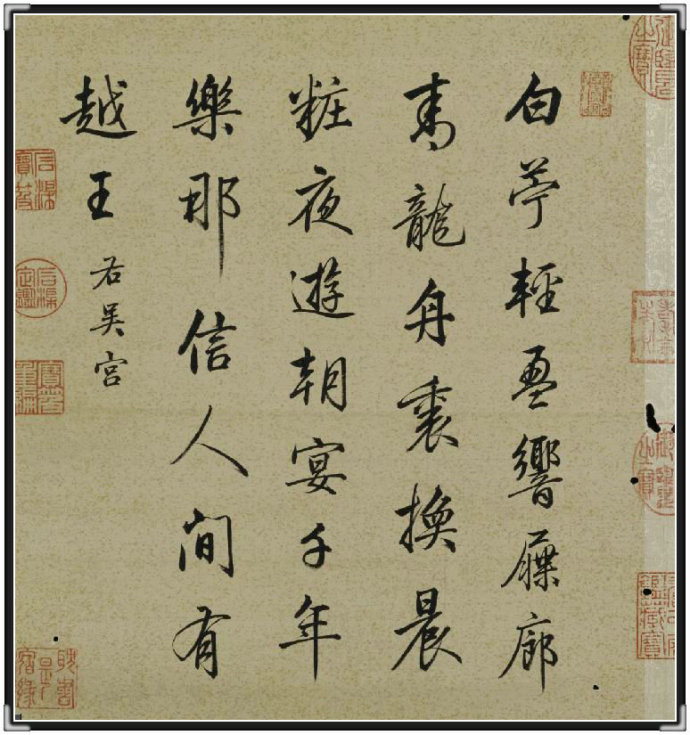 白苧輕盈響屧廊
青龍舟裏換晨
粧夜遊朝宴千年
樂那信人間有
越王
右吴宮